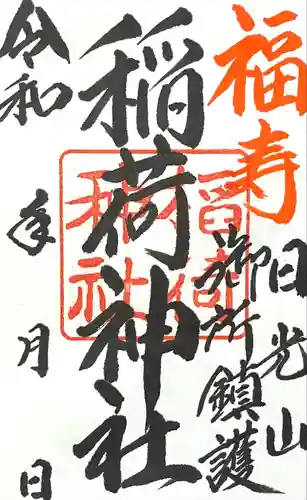 福寿
日光山
御所鎮護
稲荷神社
稲荷
神社
令和
年
月
日